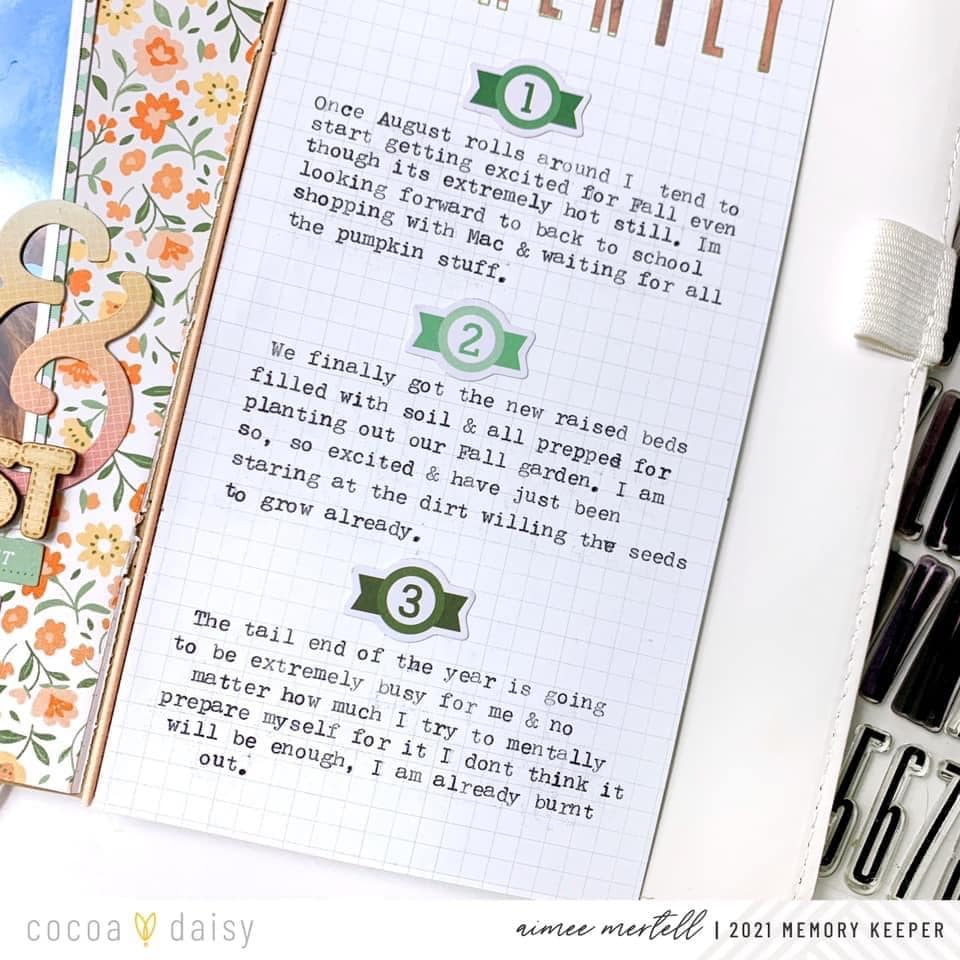 ENTLY
1
Once August rolls around I tend to
start getting excited for Fall even
though its extremely hot still. Im
looking forward to back to school
shopping with Mac & waiting for all
the pumpkin stuff.
2
We finally got the new raised beds
filled with soil & all prepped for
planting out our Fall garden. I am
so, so excited & have just been
staring at the dirt willing the seeds
to grow already.
3
The tail end of the year is going
to be extremely busy for me & no
matter how much I try to mentally
prepare myself for it I dont think it
will be enough, I am already burnt
out.
&
ST
567
cocoa daisy
aimee mertell | 2021 MEMORY KEEPER